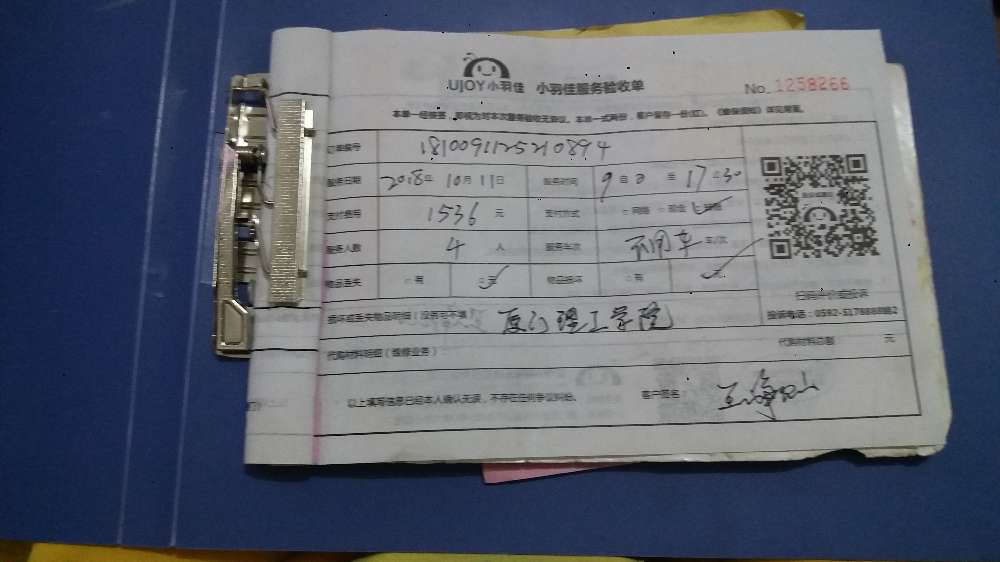 UJOY小羽佳 小羽佳服务验收单 No. 1258266
本单一经核签，即视为对本次服务验收无异议。本单一式两份，客户留存一份(红)。
订单编号 1810091125210894
服务日期 2018年 10月 11日 服务时间 9 至 17 30
支付费用 1536 元 支付方式 □网络 □现金
服务人数 4 人 服务车次 不用车 车/次
物品丢失 □有 □无 物品损坏 □有
损坏或丢失物品明细（没有可不填） 厦门理工学院
扫码评价或投诉
投诉电话：0592-5178888转2
代购材料明细（维修业务）： 代购材料总额 元
以上填写信息已向本人确认无误，不存在任何争议纠纷。 客户签名：